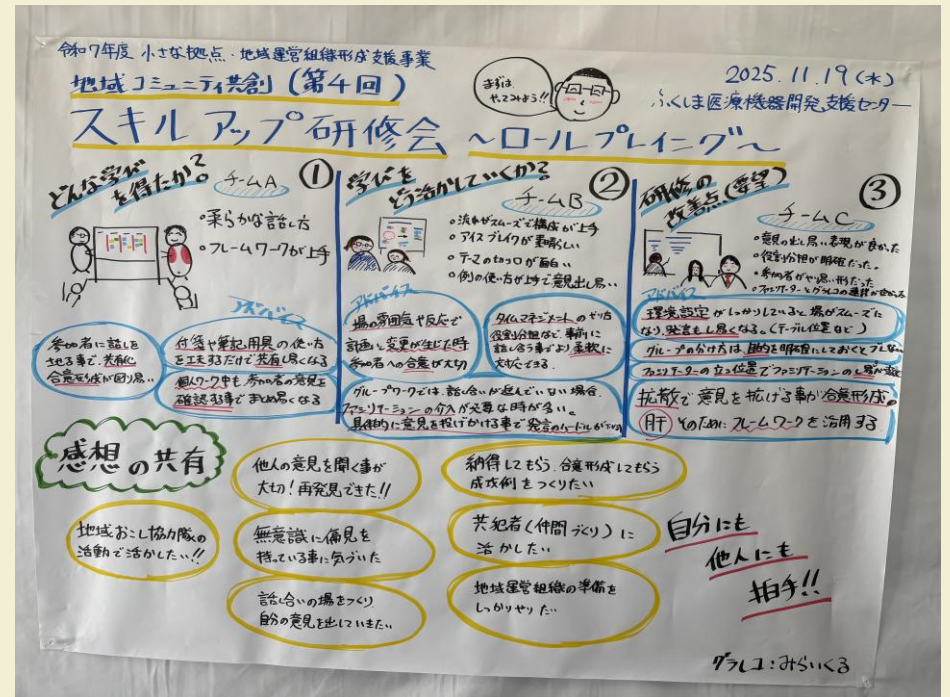 令和7年度 小さな拠点・地域運営組織形成支援事業
地域コミュニティ共創(第4回)
まずは
やってみよう!!
2025.11.19(水)
ふくしま医療機器開発支援センター
スキルアップ研修会 ~ロールプレイング~
どんな学び
を得たか?
チームA
①
・柔らかな話し方
・フレームワークが上手
アドバイス
参加者に話しを
させる事で、共有化
合意形成が図り易い
付箋や筆記用具の使い方
を工夫するだけで共有し易くなる
個人ワーク中も参加者の意見を
確認する事でまとめ易くなる
学びを
どう活かしていくか?
チームB
②
・流れがスムーズで構成が上手
・アイスブレイクが素晴らしい
・テーマの切り口が面白い
・例の使い方が上手で意見出し易い
アドバイス
場の雰囲気や反応で
計画に変更が生じた時
参加者への合意が大切
タイムマネジメントのやり方
役割分担など、事前に
話し合う事でより柔軟に
対応できる
グループワークでは、話し合いが進んでいない場合、
ファシリテーションの介入が必要な時が多い。
具体的に意見を投げかける事で発言のハードルが下がる
研修の
改善点(要望)
チームC
③
・意見の出し易い表現が良かった
・役割分担が明確だった。
・参加者がやり易い形だった
・ファシリテーターとグラレコの連携が
アドバイス
環境設定がしっかりしていると場がスムーズに
なり、発言もし易くなる。(テーブル位置など)
グループの分け方は、目的を明確にしておくとブレない
ファシリテーターの立つ位置でファシリテーションのし易さが
拡散で意見を拡げる事が合意形成の
肝 そのためにフレームワークを活用する
感想の共有
地域おこし協力隊の
活動で活かしたい!!
他人の意見を聞く事が
大切!再発見できた!!
無意識に偏見を
持っている事に気づいた
話し合いの場をつくり
自分の意見を出していきたい
納得してもらう、合意形成してもらう
成功例をつくりたい
共犯者(仲間づくり)に
活かしたい
地域運営組織の準備を
しっかりやりたい
自分にも
他人にも
拍手!!
グラレコ:みらいくる